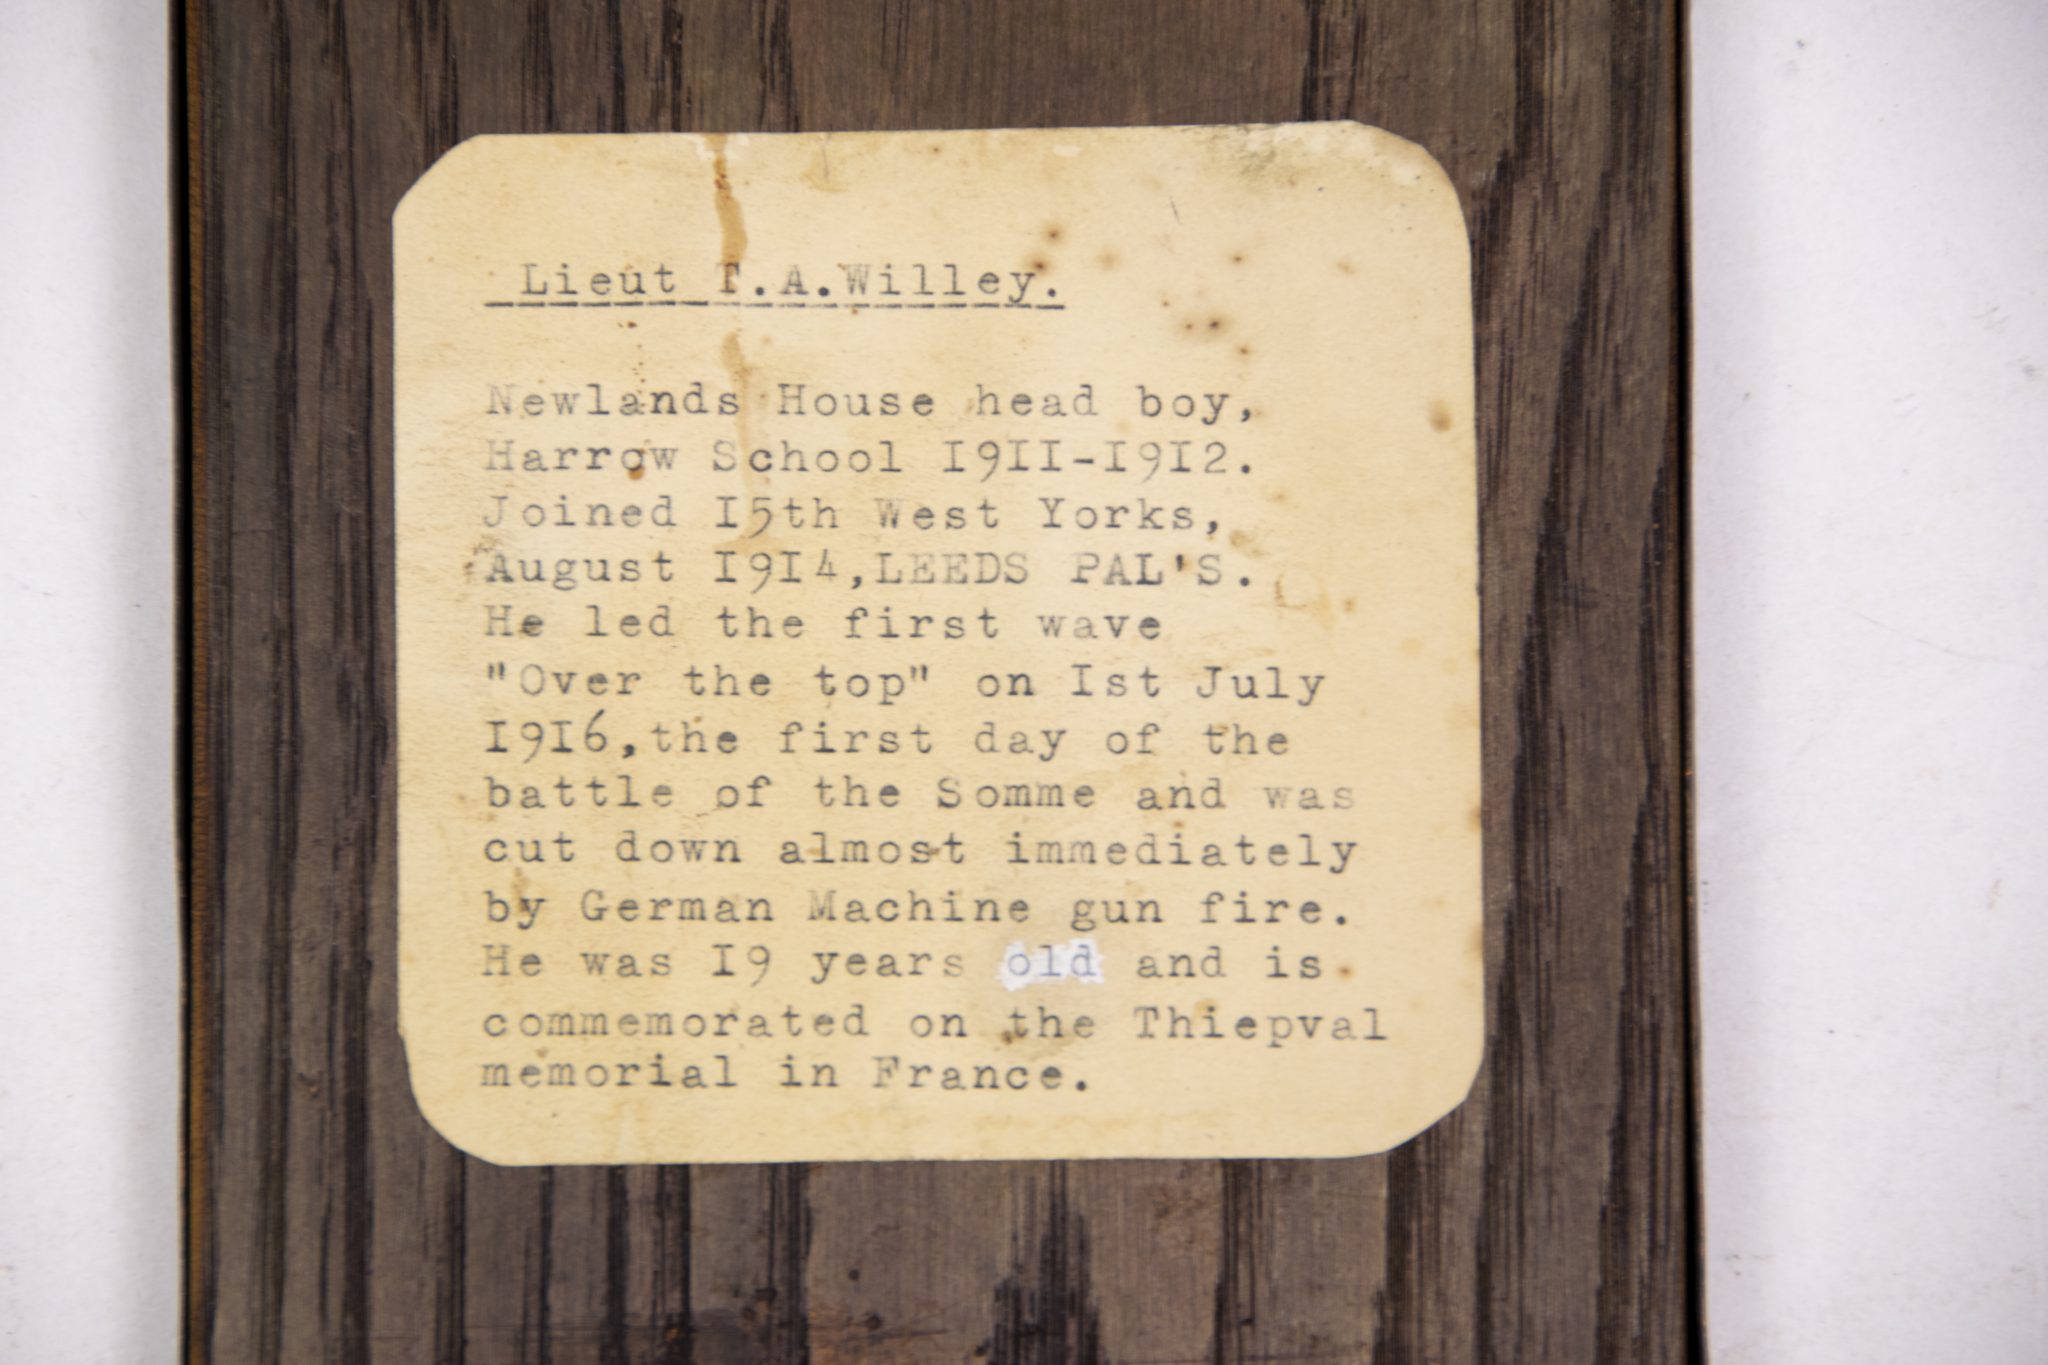 Lieut T.A.Willey.
Newlands House head boy,
Harrow School I9II-I9I2.
Joined I5th West Yorks,
August I9I4,LEEDS PAL'S.
He led the first wave
"Over the top" on Ist July
I9I6,the first day of the
battle of the Somme and was
cut down almost immediately
by German Machine gun fire.
He was I9 years old and is
commemorated on the Thiepval
memorial in France.